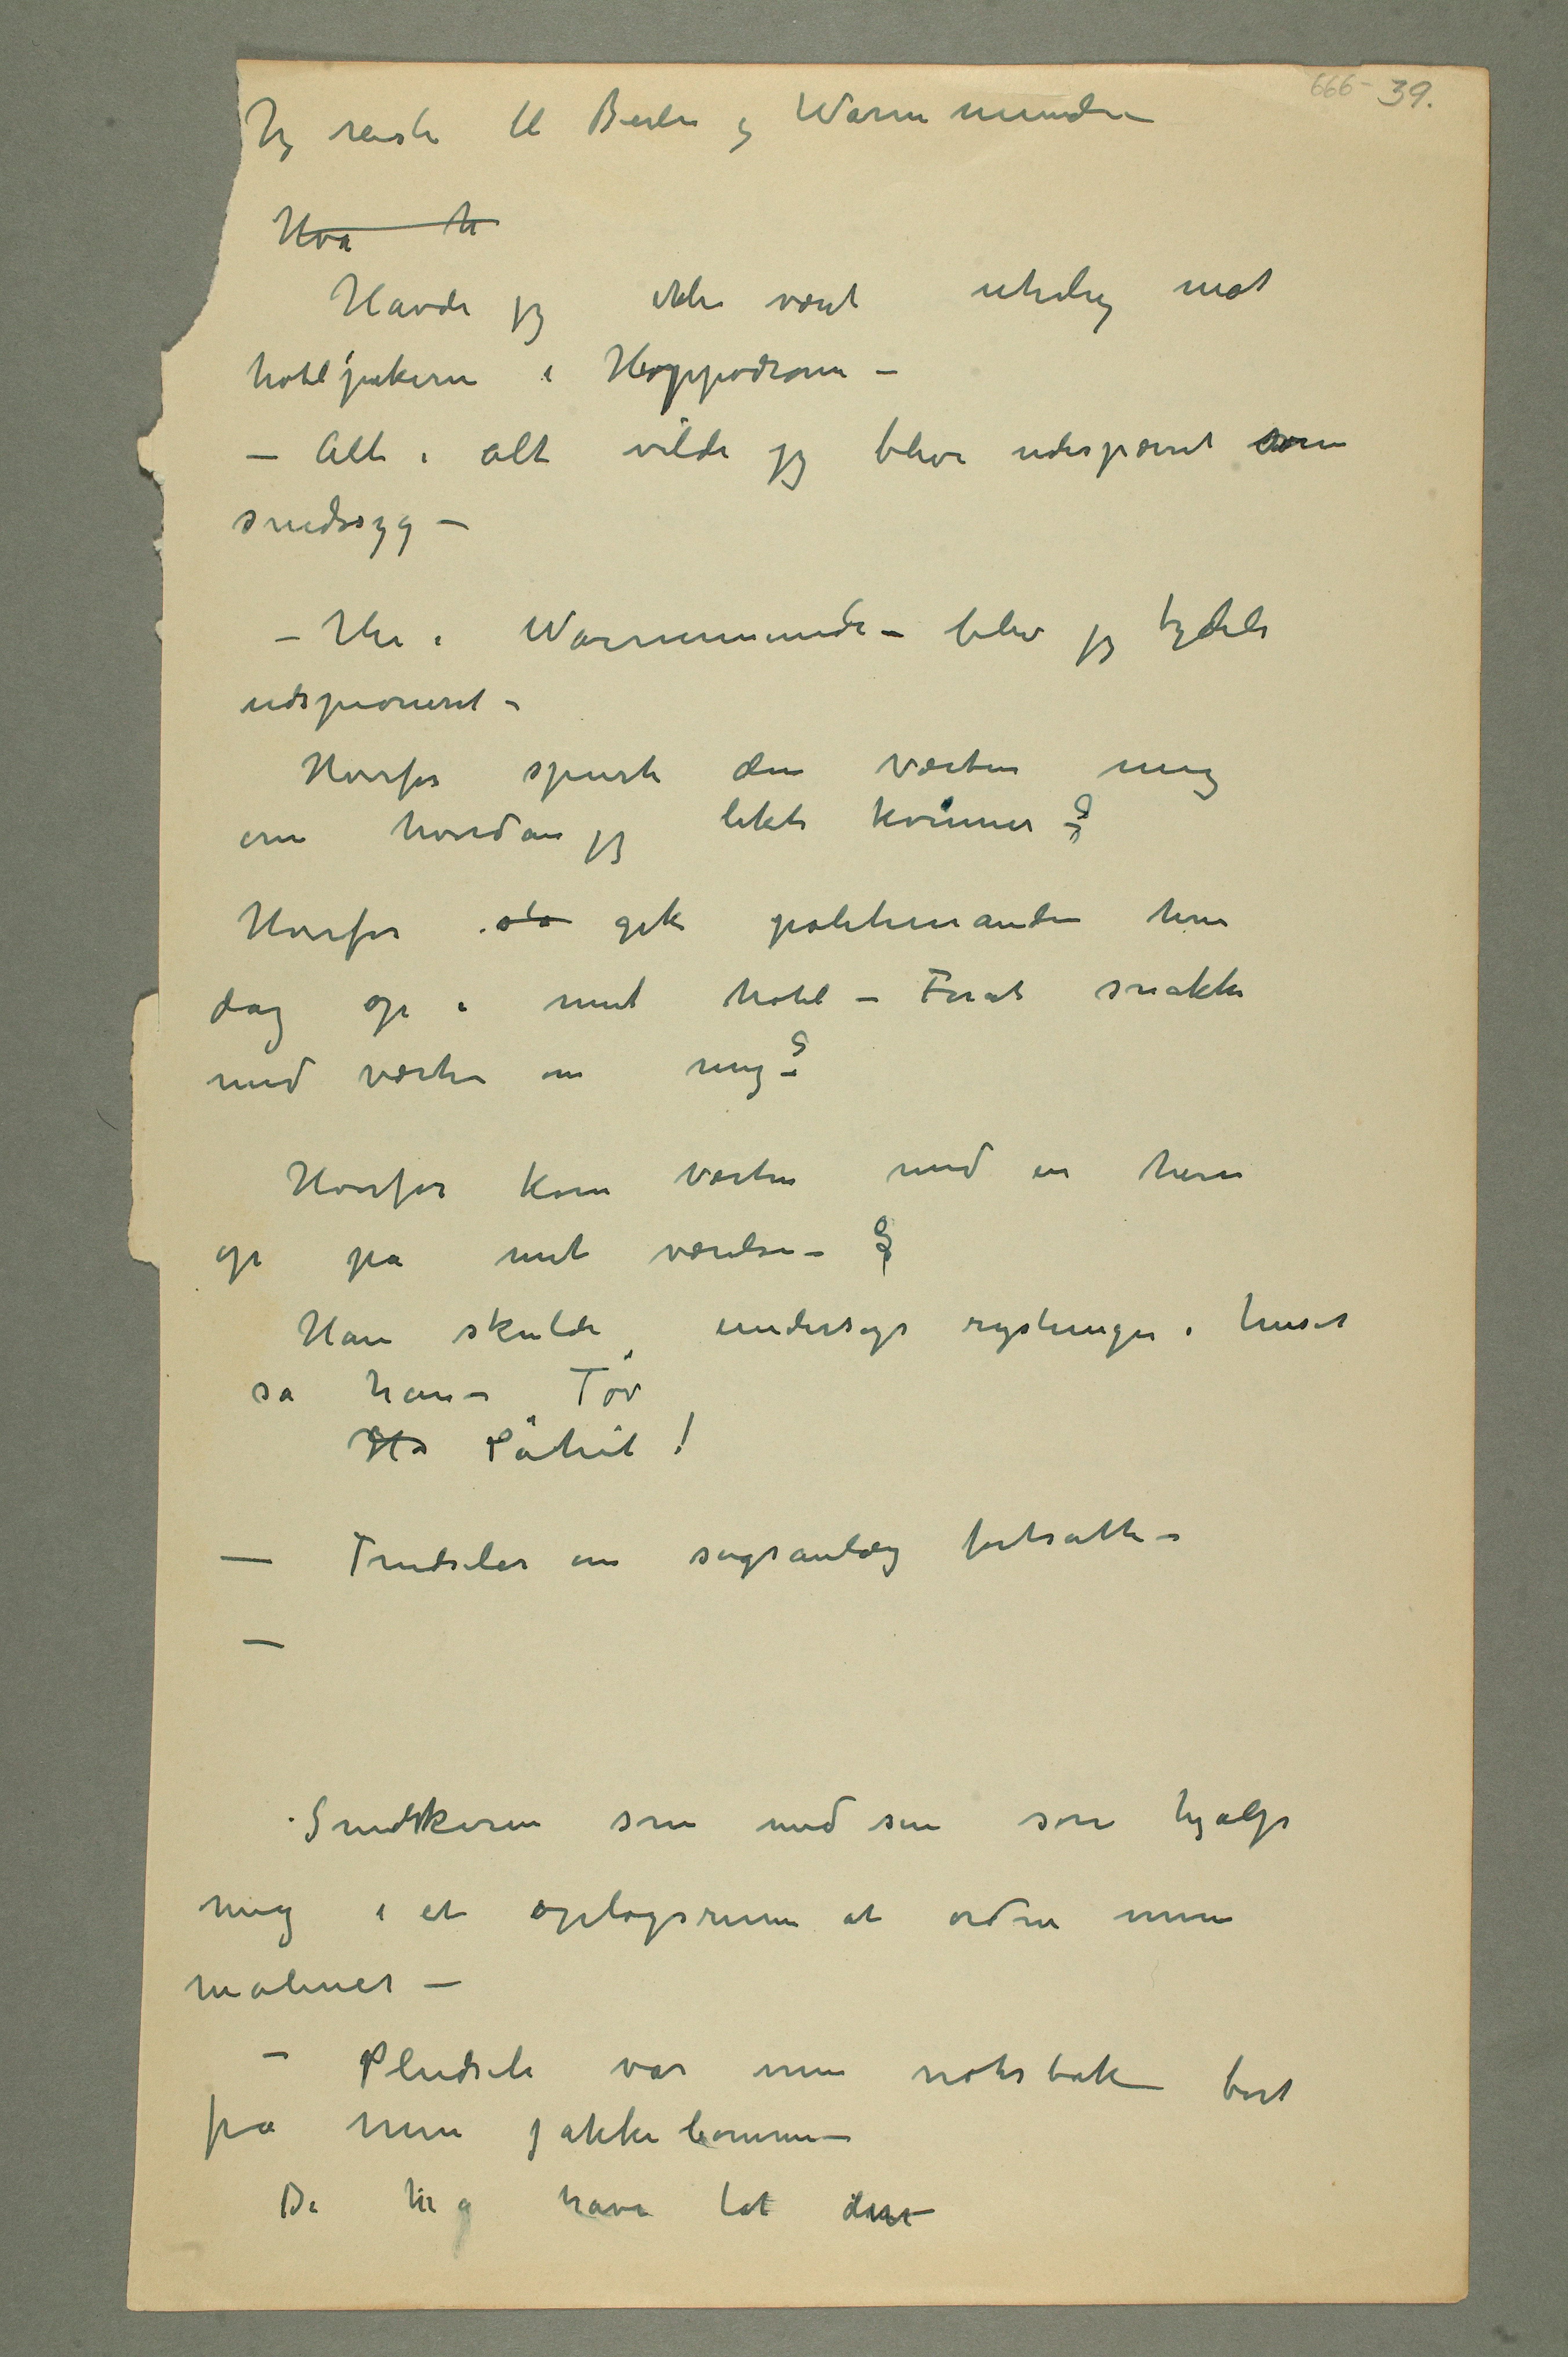 666- 39.
Jeg reiste til Berlin og Warnemünde –
Hva h
Havde jeg ikke været uheldig mot
hotelpikerne i Hoppodrom –
– Alt i alt vilde jeg bleve udspioneret som
sindssyg –
– Her i Warnemünde – blev jeg tydeli
udspioneret –
Hvorfor spurte den værten mig
om hvordan jeg likte kvinner – ?
Hvorfor sto gik politimanden hin
dag op i mit hotel – Forat snakke
med værten om mig – ?
Hvorfor kom værten med en herre
op på mit værelse – ?
Han skulde undersøge rystninger i huset
sa han – Tøv
Ha Påhit !
– Trudseler om sagsanlæg fortsatte –
–
Snedkeren som med sin søn hjalp
mig i et oplagsrum at ordne mine
malerier –
– Pludseli var min notisbok bort
fra min jakkelomme –
De ha tat den –